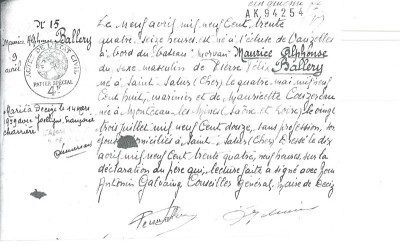 AK 94254
N° 15
Maurice Alphonse Ballery
9 avril
ACTES DE L'ETAT CIVIL
PAPIER SPECIAL
4
Marié à Decize le 14 mars
1959 avec Jocelyne Françoise
Charrière
Le neuf avril mil neuf Cent trente
quatre, seize heures, est né à l'écluse de
à bord du bateau "Morvan" Maurice Alphonse
du sexe masculin de Pierre Félix Ballery
né à Saint-Satur (Cher) le quatre mai mil neuf
Cent huit, marinier, et de Mauricette
née à Montceau-les-Mines (Saône et Loire) le vingt
trois juillet mil neuf Cent douze, sans profession, son
domiciliés à Saint-Satur (Cher) Dressé le dix
avril mil neuf cent trente quatre, neuf heures, sur la
déclaration du père qui, lecture faite a signé avec Nous
Antonin Conseiller Général, Maire de Decize